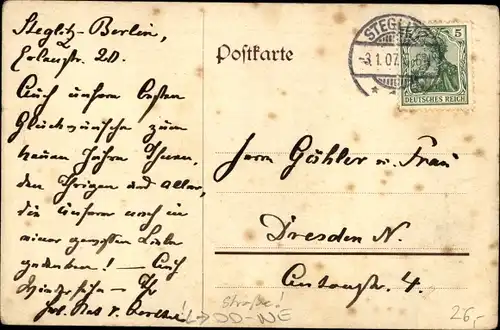 Steglitz-Berlin,
Erlenstr. 20.
Auch unsere besten
Glückwünsche zum
neuen Jahre Ihnen,
den Ihrigen und allen,
die unserer noch in
einer gewissen Liebe
gedenken! — Auf
Wiedersehn — Ihr
Postkarte
STEGLITZ
-3.1.07.
5
DEUTSCHES REICH
Herrn Gähler u. Frau
Dresden N.
Antonstr. 4.
Straße!
→ DD-NE
26,-